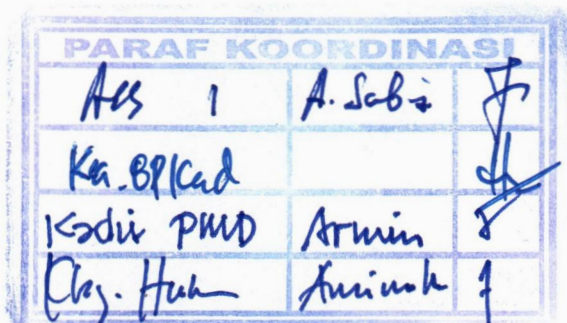 PARAF KOORDINASI
Ass 1 A. Sabi
Ka. BPKad
Kadis PMD Armin
Kbg. Huk Aminah